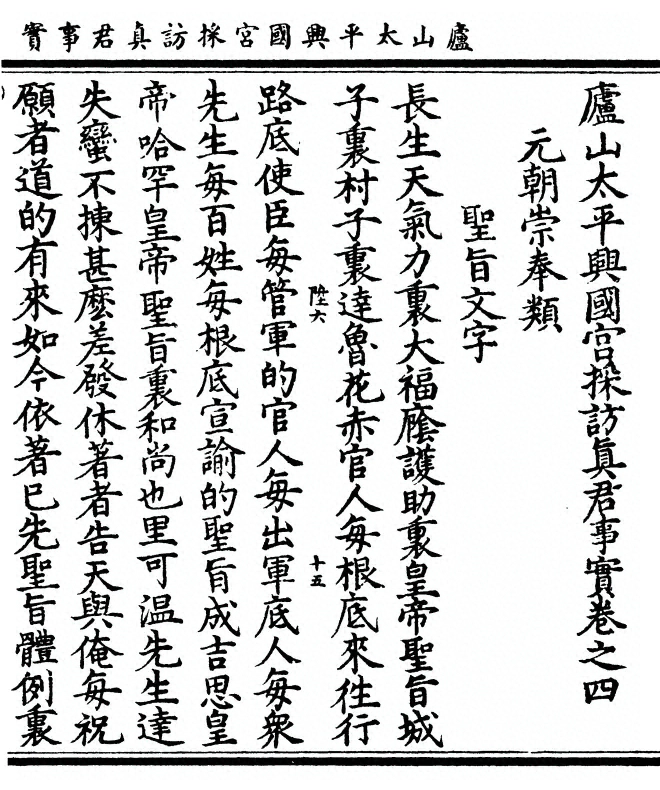 廬山太平興國宮採訪真君事實
廬山太平興國宮採訪眞君事實卷之四
元朝崇奉類
聖旨文字
長生天氣力裏大福廕護助裏皇帝聖旨城
子裏村子裏達魯花赤官人每根底來徃行
陞六
十五
路底使臣每管軍的官人每出軍底人每衆
先生每百姓每根底宣諭的聖旨成吉思皇
帝哈罕皇帝聖旨裏和尚也里可温先生達
失蠻不揀甚麽差發休著者告天與俺每祝
願者道的有來如今依著已先聖旨體例裏